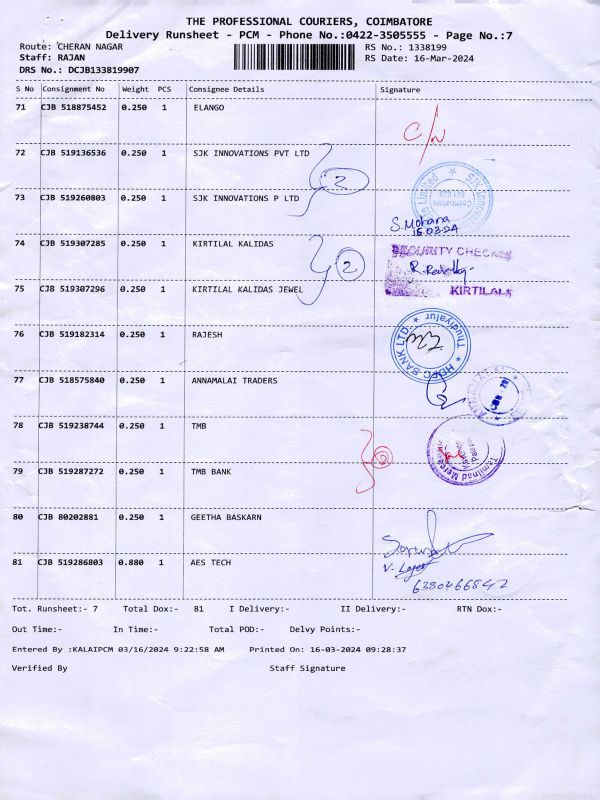 THE PROFESSIONAL COURIERS, COIMBATORE
Delivery Runsheet - PCM - Phone No.:0422-3505555 - Page No.:7
Route: CHERAN NAGAR RS No.: 1338199
Staff: RAJAN RS Date: 16-Mar-2024
DRS No.: DCJB133819907
S No Consignment No Weight PCS Consignee Details Signature
71 CJB 518875452 0.250 1 ELANGO
C/N
72 CJB 519136536 0.250 1 SJK INNOVATIONS PVT LTD
2
73 CJB 519260803 0.250 1 SJK INNOVATIONS P LTD
Coimbatore
S.Mohana
74 CJB 519307285 0.250 1 KIRTILAL KALIDAS
SECURITY CHECKED
2
75 CJB 519307296 0.250 1 KIRTILAL KALIDAS JEWEL
KIRTILALS
76 CJB 519182314 0.250 1 RAJESH
HDFC BANK LTD. Thudiyalur
77 CJB 518575840 0.250 1 ANNAMALAI TRADERS
78 CJB 519238744 0.250 1 TMB
2
79 CJB 519287272 0.250 1 TMB BANK
80 CJB 80202881 0.250 1 GEETHA BASKARN
81 CJB 519286803 0.880 1 AES TECH
6380466842
Tot. Runsheet:- 7 Total Dox:- 81 I Delivery:- II Delivery:- RTN Dox:-
Out Time:- In Time:- Total POD:- Delvy Points:-
Entered By :KALAIPCM 03/16/2024 9:22:58 AM Printed On: 16-03-2024 09:28:37
Verified By Staff Signature